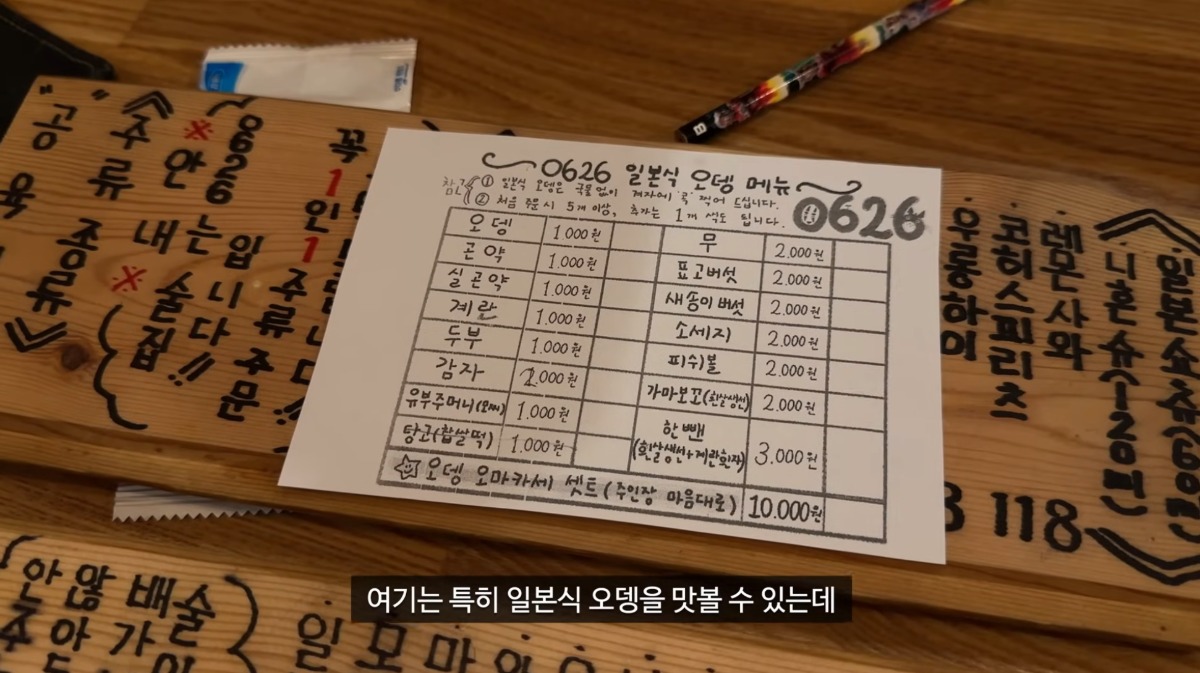 0626 일본식 오뎅 메뉴
참고 ① 일본식 오뎅은 국물 없이 겨자에 '콕' 찍어 드십니다.
② 처음 주문 시 5개 이상, 추가는 1개 씩도 됩니다.
0626
오뎅 1.000원 무 2.000원
곤약 1.000원 표고버섯 2.000원
실곤약 1.000원 새송이버섯 2.000원
계란 1.000원 소세지 2.000원
두부 1.000원 피쉬볼 2.000원
감자 2.000원 가마보꼬(흰살생선) 2.000원
유부주머니(모찌) 1.000원 한뺀 (흰살생선+계란흰자) 3.000원
탕고(찹쌀떡) 1.000원
오뎅 오마카세 셋트(주인장 마음대로) 10.000원
"공
육
《주류 종류》
※안내※
0626는 입니다
술집
꼭 1인 1
주류 주문
《일본쇼츄(60ml)
니혼슈(120ml)》
레몬사와
코히스피리츠
우롱하이
118
B
술 배 않 안
일 모 마
여기는 특히 일본식 오뎅을 맛볼 수 있는데